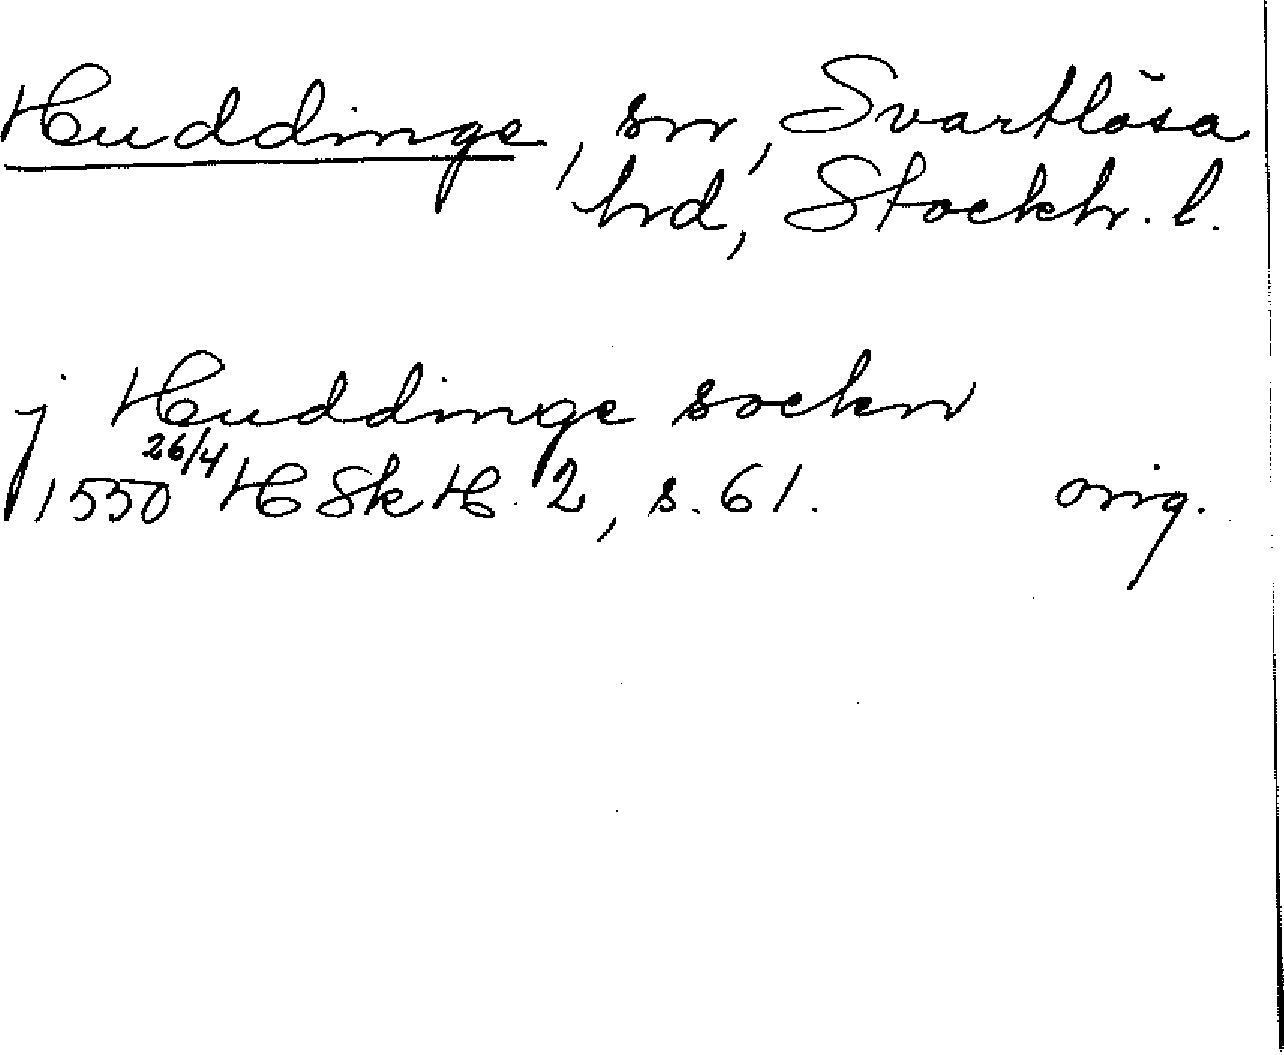 Huddinge, sn, Svartlösa
hrd, Stockh. l.
j Huddinge sockn
1550 26/4 HSkH. 2, s. 61. orig.